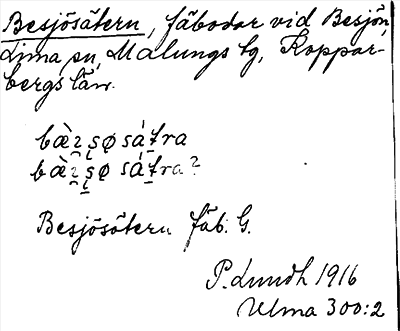 Besjösätern, fäbodar vid Besjön,
Lima sn, Malungs tg, Koppar-
bergs län.
bæ̀ɿ̯s̨ø sátra
bæ̀ɿ̯s̨ø sátra?
Besjösätern fäb. G.
P. Lundh 1916
Ulma 300:2